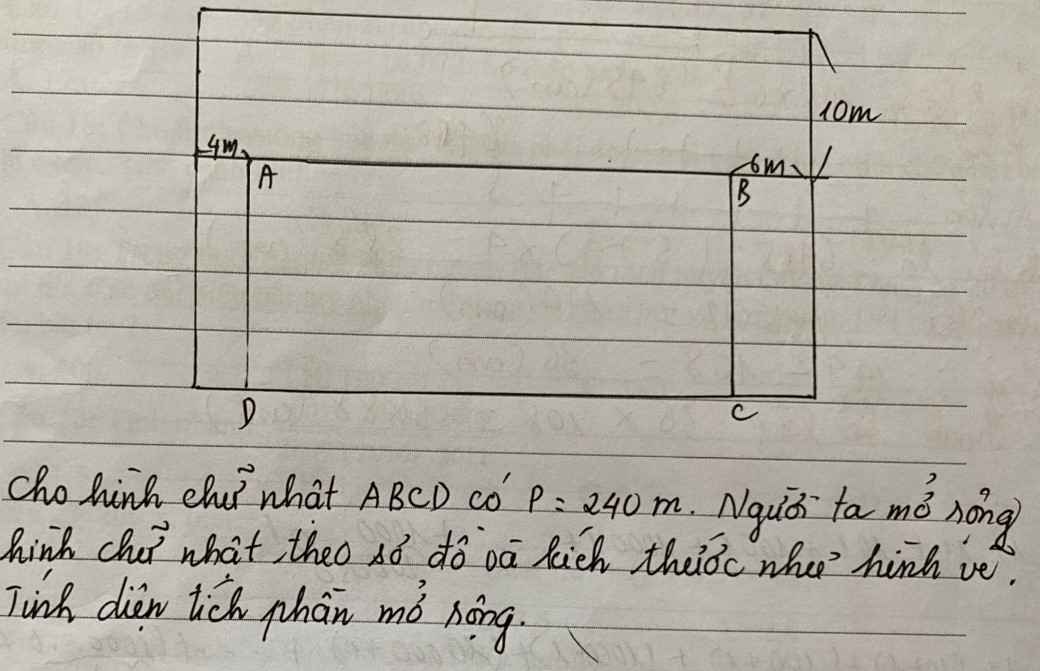 10m
4m 6m
A B
D C
Cho hình chữ nhật ABCD có P = 240 m. Người ta mở rộng
hình chữ nhật theo sơ đồ và kích thước như hình vẽ.
Tính diện tích phần mở rộng.